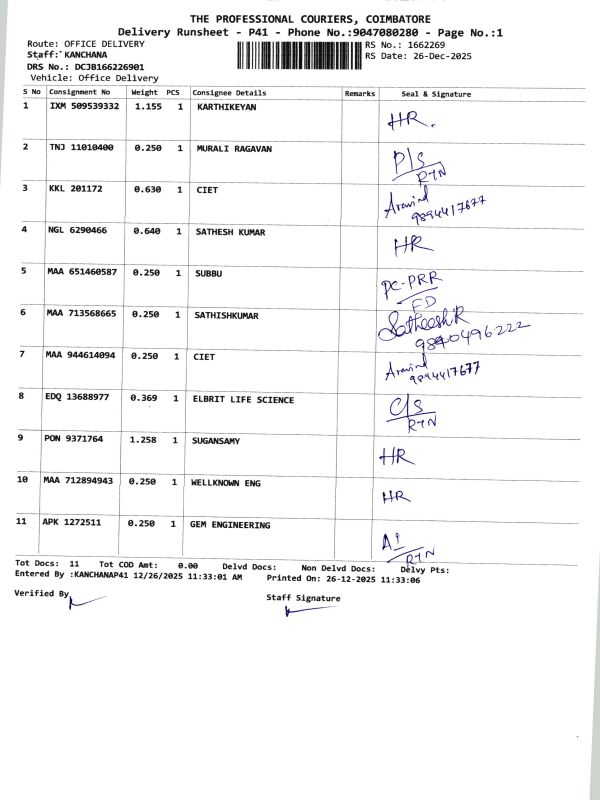 THE PROFESSIONAL COURIERS, COIMBATORE
Delivery Runsheet - P41 - Phone No.:9047080280 - Page No.:1
Route: OFFICE DELIVERY RS No.: 1662269
Staff: KANCHANA RS Date: 26-Dec-2025
DRS No.: DCJB166226901
Vehicle: Office Delivery
S No Consignment No Weight PCS Consignee Details Remarks Seal & Signature
1 IXM 509539332 1.155 1 KARTHIKEYAN HR.
2 TNJ 11010400 0.250 1 MURALI RAGAVAN P/S
RTN
3 KKL 201172 0.630 1 CIET Aravind
9894417677
4 NGL 6290466 0.640 1 SATHESH KUMAR HR
5 MAA 651460587 0.250 1 SUBBU PC-PRR
FD
6 MAA 713568665 0.250 1 SATHISHKUMAR Satheesh R
9840496222
7 MAA 944614094 0.250 1 CIET Aravind
9894417677
8 EDQ 13688977 0.369 1 ELBRIT LIFE SCIENCE C/S
RTN
9 PON 9371764 1.258 1 SUGANSAMY HR
10 MAA 712894943 0.250 1 WELLKNOWN ENG HR
11 APK 1272511 0.250 1 GEM ENGINEERING
RTN
Tot Docs: 11 Tot COD Amt: 0.00 Delvd Docs: Non Delvd Docs: Delvy Pts:
Entered By :KANCHANAP41 12/26/2025 11:33:01 AM Printed On: 26-12-2025 11:33:06
Verified By Staff Signature